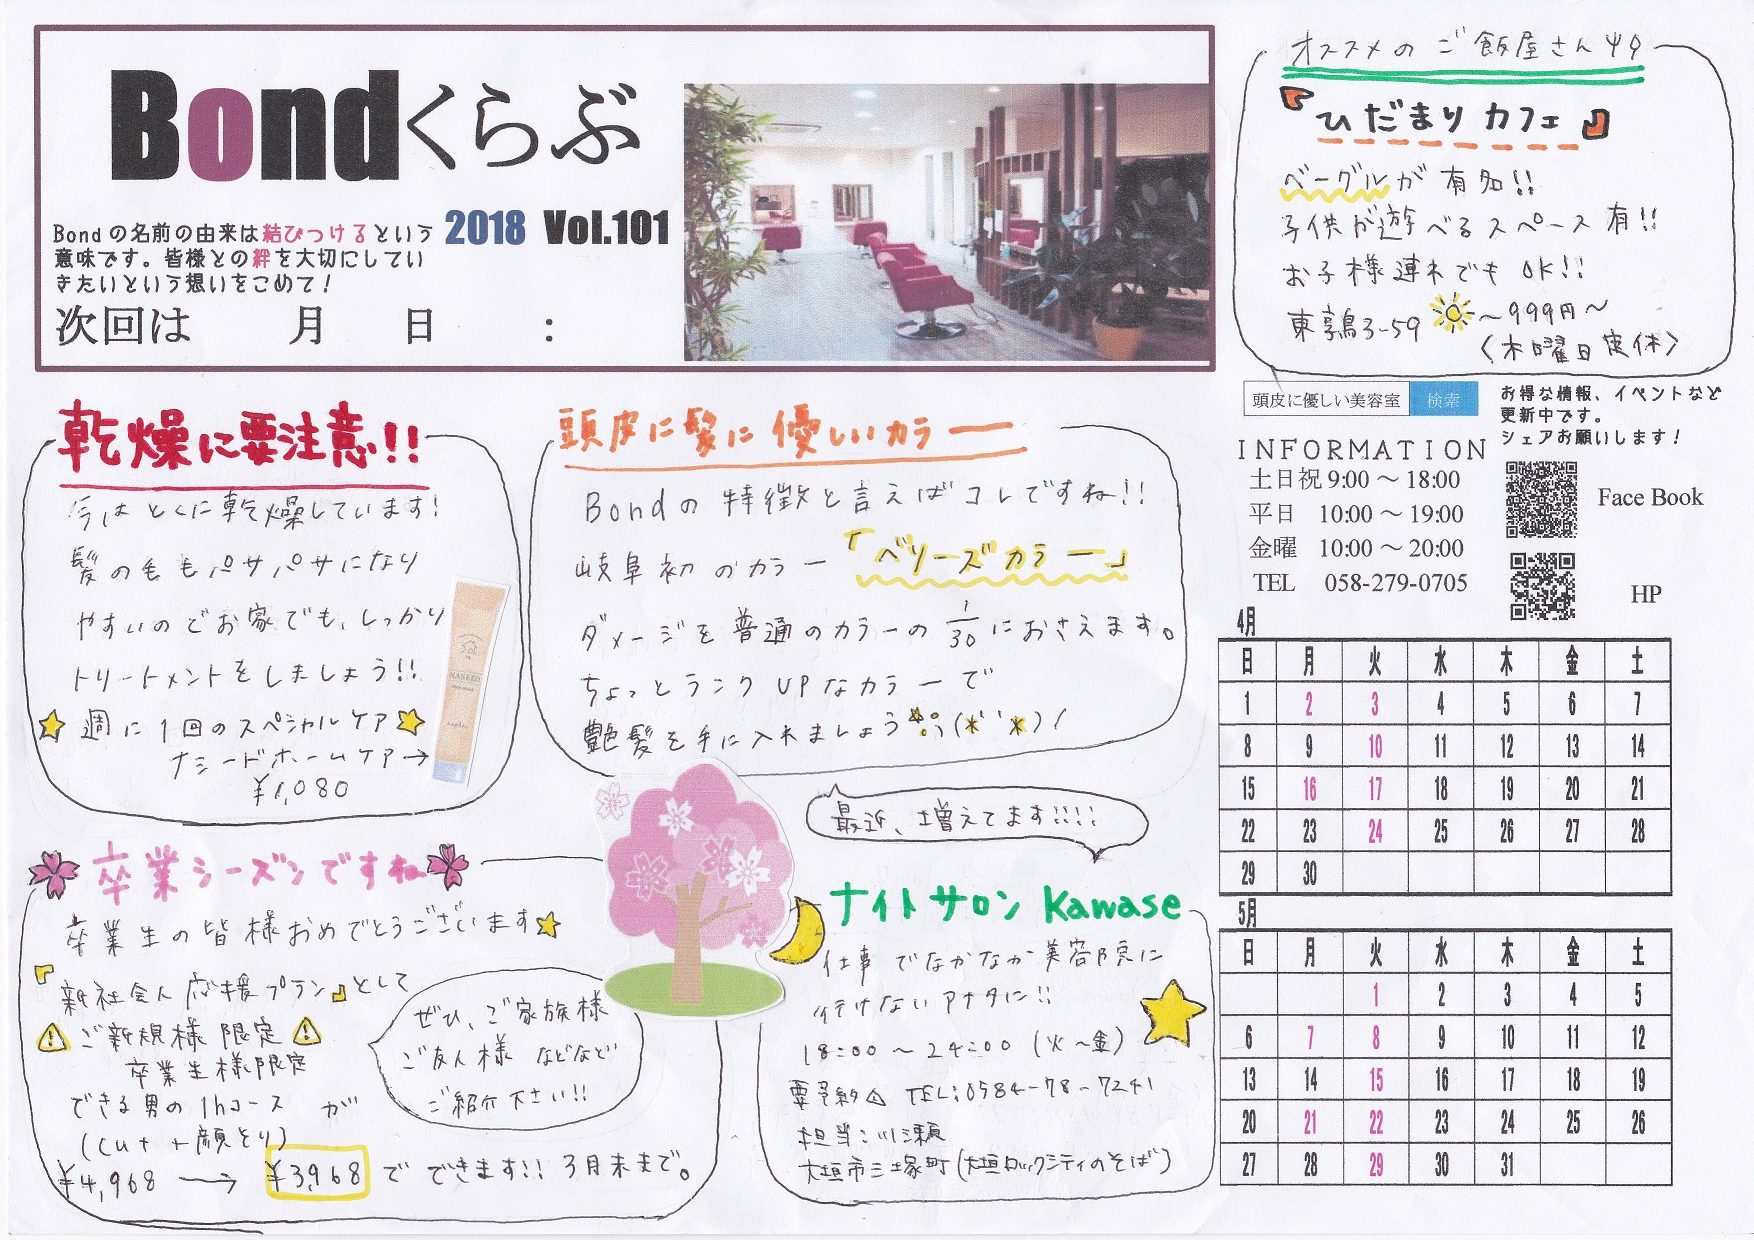 Bondくらぶ
2018 Vol.101
Bondの名前の由来は結びつけるという
意味です。皆様との絆を大切にしてい
きたいという想いをこめて！
次回は 月 日 :
オススメのご飯屋さん
『ひだまりカフェ』
ベーグルが有名!!
子供が遊べるスペース有!!
お子様連れでもOK!!
東鶉3-59 ～999円～
〈木曜日定休〉
頭皮に優しい美容室 検索
お得な情報、イベントなど
更新中です。
シェアお願いします！
INFORMATION
土日祝 9:00～18:00
平日 10:00～19:00
金曜 10:00～20:00
TEL 058-279-0705
Face Book
HP
乾燥に要注意!!
今はとくに乾燥しています!
髪の毛もパサパサになり
やすいのでお家でも、しっかり
トリートメントをしましょう!!
週に1回のスペシャルケア
ナシードホームケア→
¥1,080
NASEED
頭皮に髪に優しいカラー
Bondの特徴と言えばコレですね!!
岐阜初のカラー「ベリーズカラー」
ダメージを普通のカラーの1/30におさえます。
ちょっとランクUPなカラーで
艶髪を手に入れましょう
卒業シーズンですね
卒業生の皆様おめでとうございます
『新社会人応援プラン』として
ご新規様限定
卒業生様限定
できる男の1hコース が
(cut+顔そり)
¥4,968 → ¥3,968でできます!! 3月末まで。
ぜひ、ご家族様
ご友人様 などなど
ご紹介下さい!!
最近、増えてます!!!!
ナイトサロン Kawase
仕事でなかなか美容院に
行けないアナタに!!
18:00～24:00 (火～金)
要予約 TEL:0584-78-7241
担当:川瀬
大垣市三塚町(大垣ロックシティのそば)
4月
日 月 火 水 木 金 土
1 2 3 4 5 6 7
8 9 10 11 12 13 14
15 16 17 18 19 20 21
22 23 24 25 26 27 28
29 30
5月
日 月 火 水 木 金 土
1 2 3 4 5
6 7 8 9 10 11 12
13 14 15 16 17 18 19
20 21 22 23 24 25 26
27 28 29 30 31